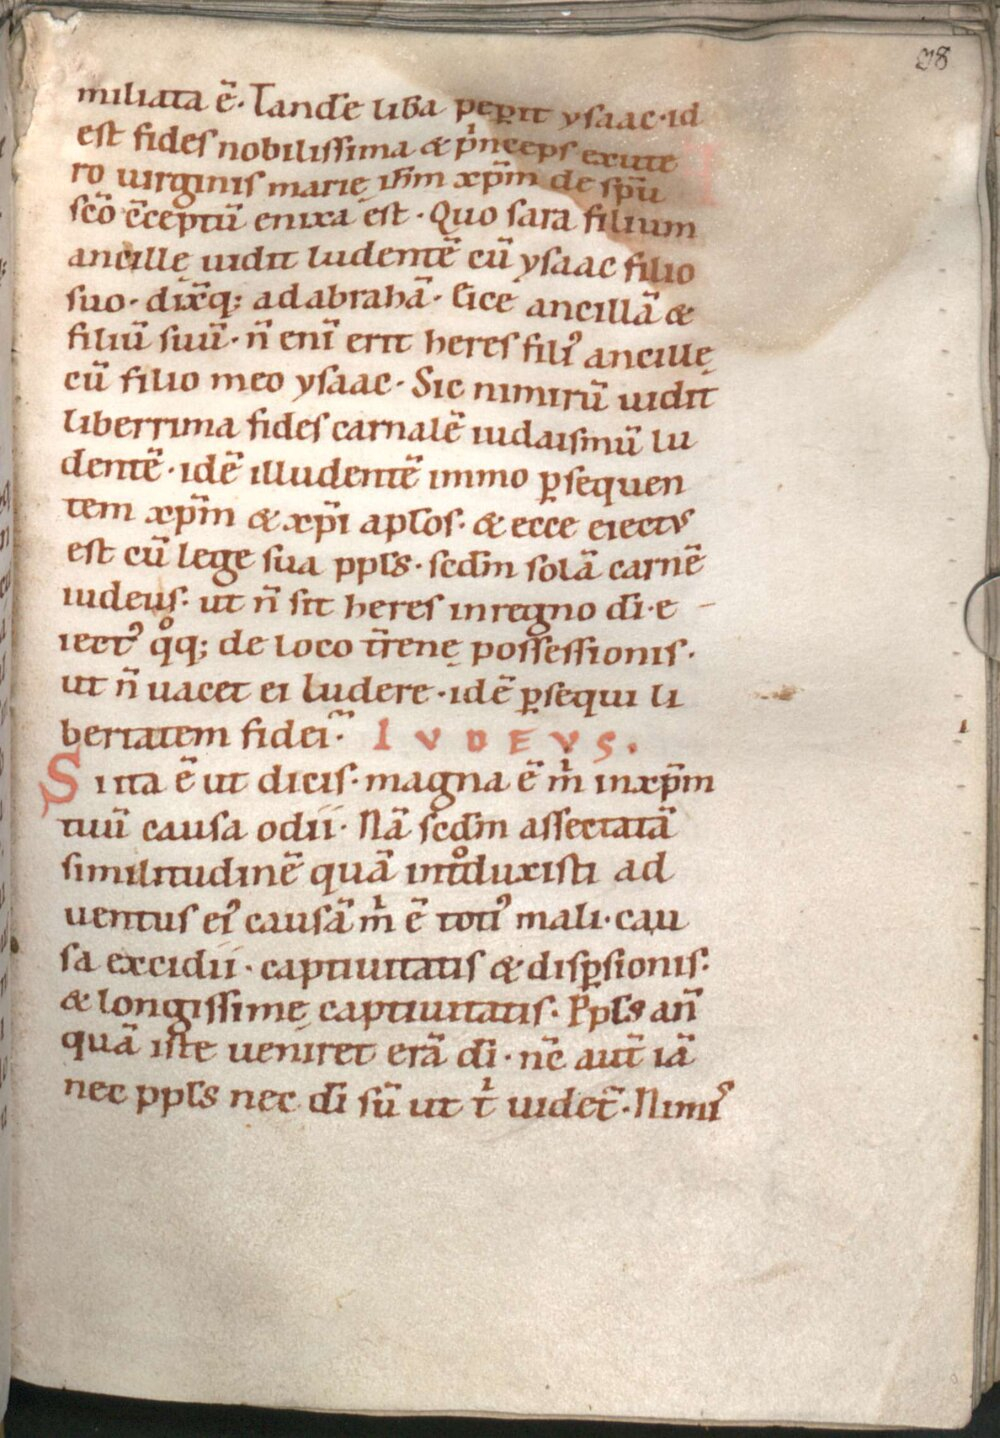 28
miliata ē. Tandē liba pep̄it ysaac. id
est fides nobilissima & p̄nceps ex ute
ro uirginis marię ih̄m xp̄m de sp̄u
sc̄o c̄ceptū enixa est. Quo sara filium
ancillę uidit ludentē cū ysaac filio
suo. dix̄q; ad abrahā. Eice ancillā &
filiū suū. n̄ enī erit heres filiꝰ ancillę
cū filio meo ysaac. Sic nimirū uidit
liberrima fides carnalē iudaismū lu
dentē. idē illudentē immo ꝑsequen
tem xp̄m & xp̄i aplo̅s. & ecce eiectus
est cū lege sua ppl̅s. scd̅m solā carnē
iudeus. ut n̄ sit heres in regno d̄i. e
iectꝰ qͦq; de loco t̄renę possessionis.
ut n̄ uacet ei ludere. idē ꝑsequi li
bertatem fidei. IVDEVS.
Si ita ē ut dicis. magna ē m̄ in xp̄m
tuū causa odii. Nā scd̅m assectatā
similitudinē quā introduxisti ad
uentus eiꝰ causā m̄ ē totiꝰ mali. cau
sa excidii. captiuitatis & disꝑsionis.
& longissimę captiuitatis. Ppl̅s an̄
quā iste ueniret erā d̄i. nc̄ aut̄ iā
nec ppl̅s nec d̄i sū ut t̄ uidet̄. Nimiꝝ